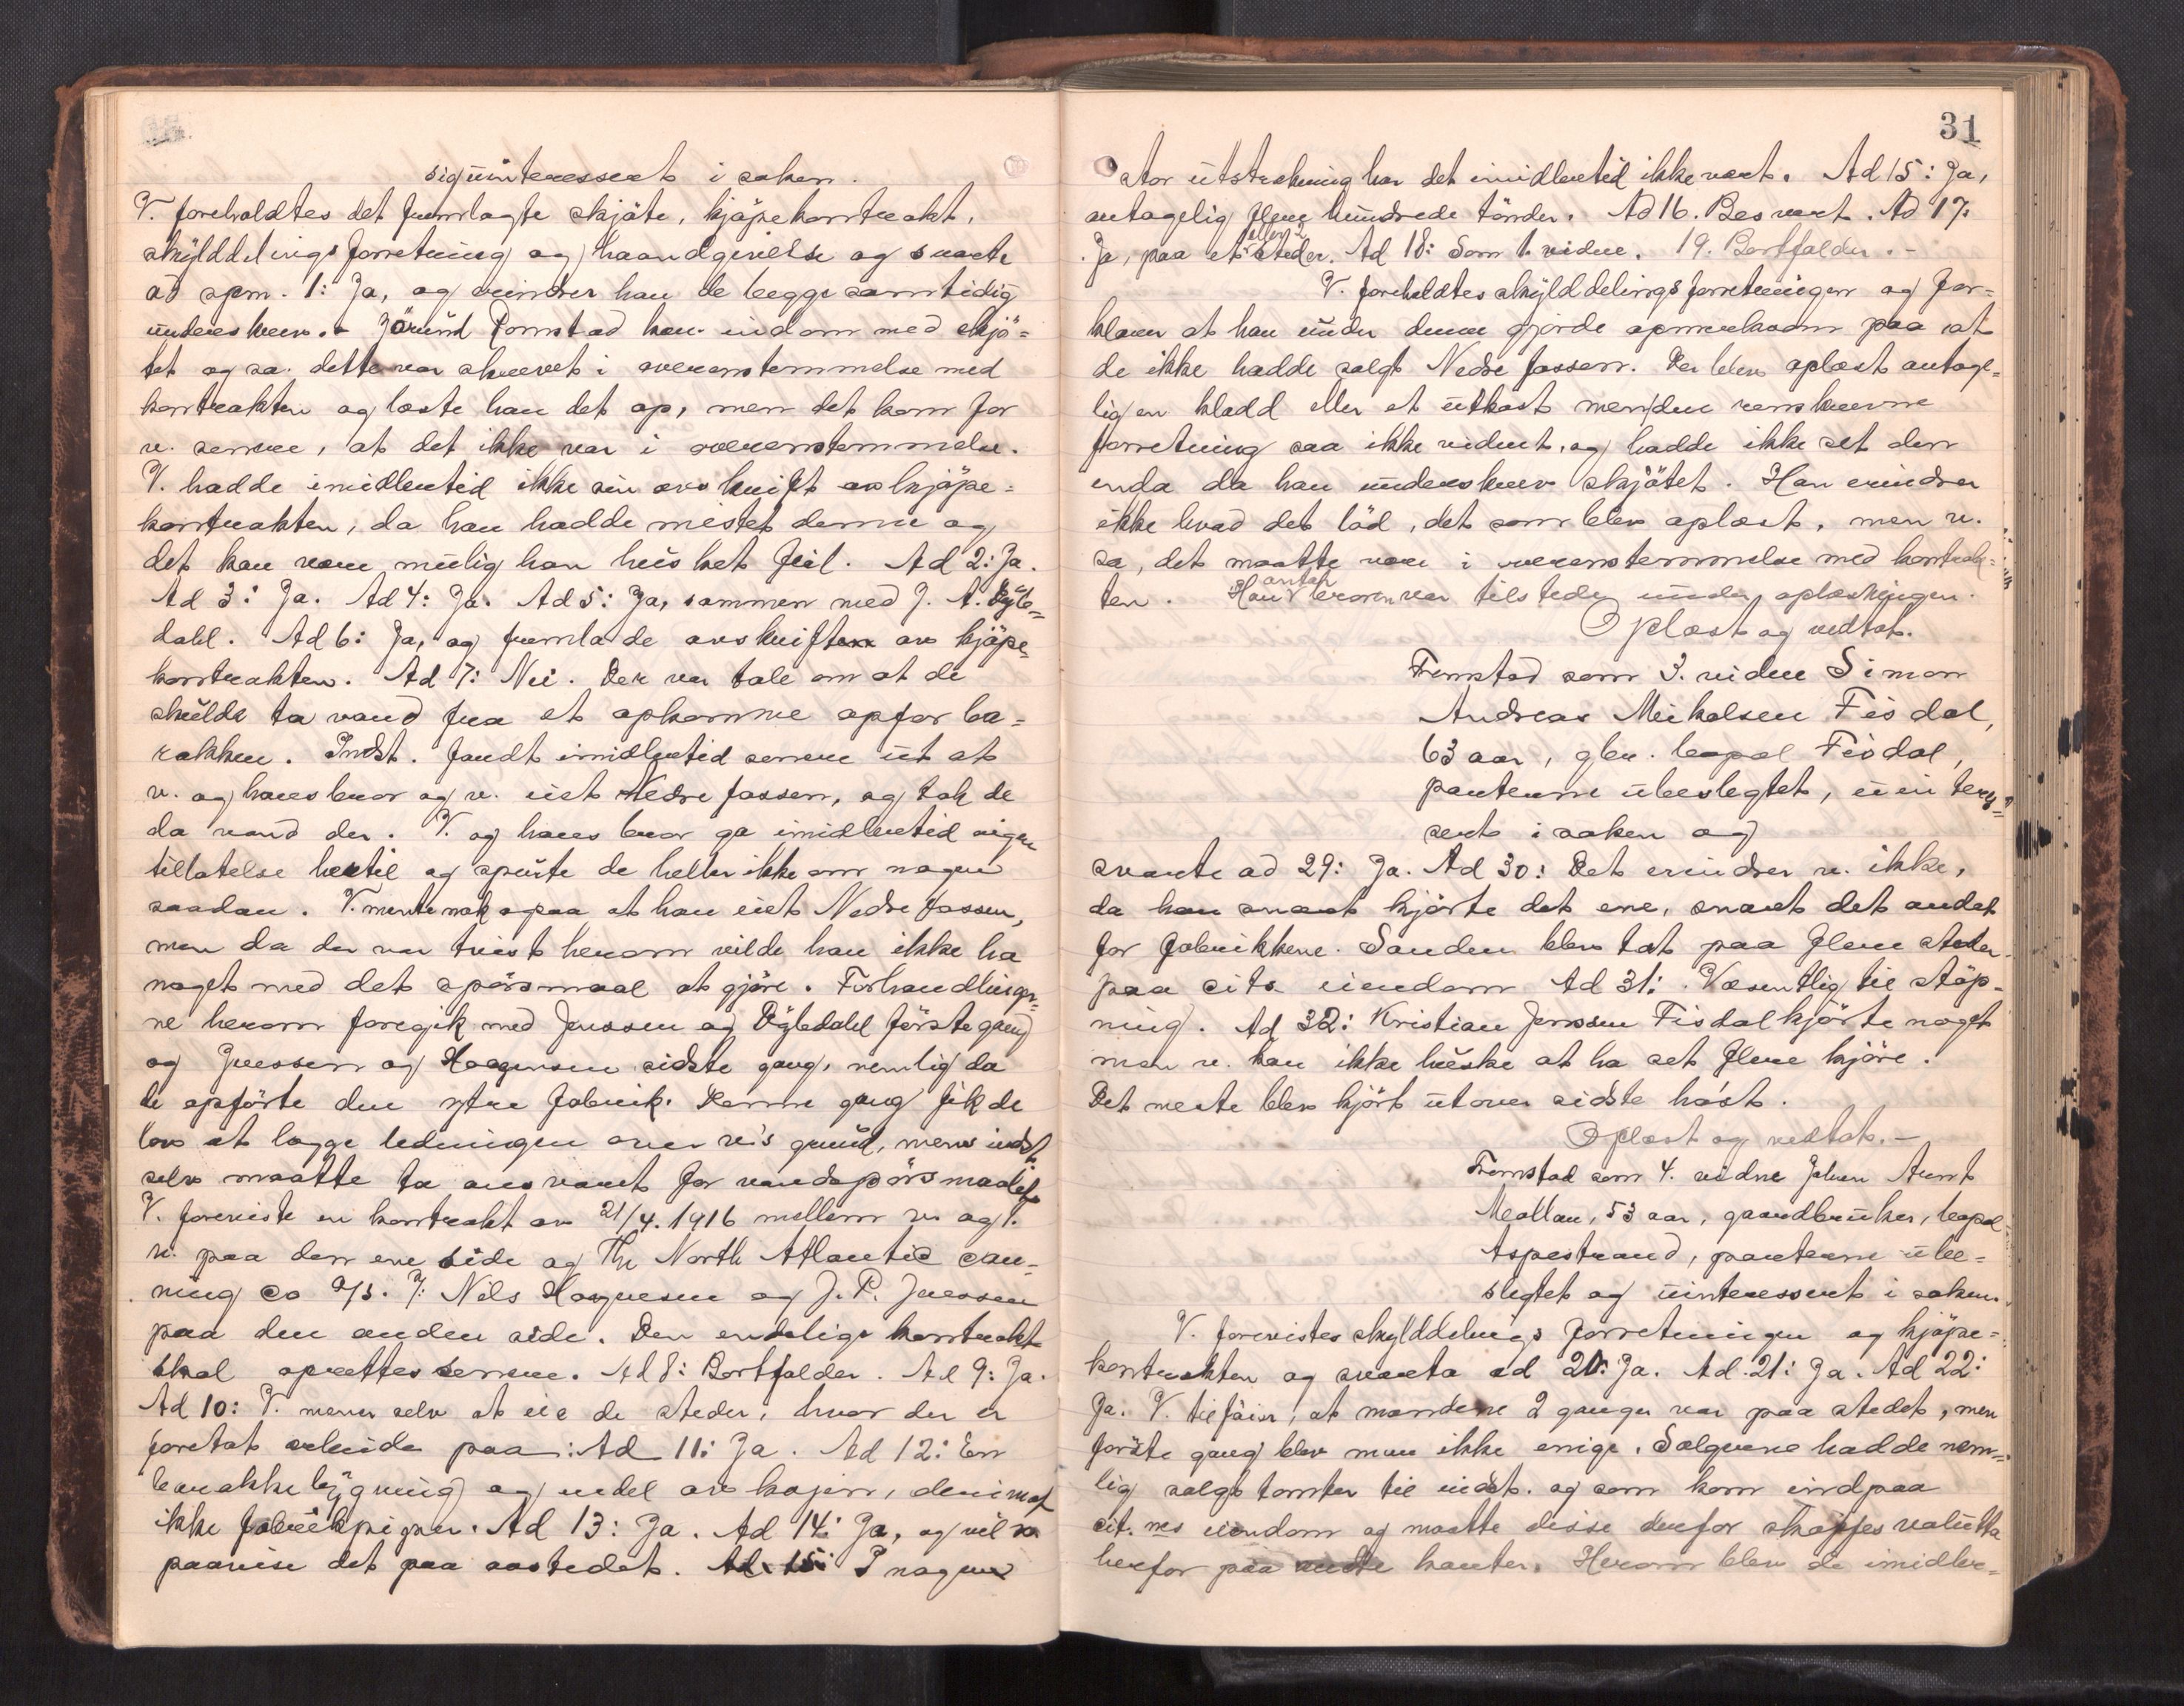 siguinteressert i saken.
V. foreholdtes det fremlagte skjöte, kjöpekontrakt,
skylddelingsforretning og haandgivelse og svarte
ad spm. 1: Ja, og erindrer han de begge samtidig
underskrev. Jörund Romstad kom indom med skjö=
tet og sa dette var skrevet i overenstemmelse med
kontrakten og læste han det op, men det kom for
v. senere, at det ikke var i overenstemmelse.
V. hadde imidlertid ikke sin avskrift av kjöpe=
kontrakten, da han hadde mistet denne og
det kan være mulig han husket feil. Ad 2: Ja.
Ad 3: Ja. Ad 4: Ja. Ad 5: Ja, sammen med J. A. Dyb=
dahl. Ad 6: Ja, og fremla de avskriften av kjöpe=
kontrakten. Ad 7: Nei. Der var tale om at de
skulde ta vand fra et opkomme opfor ba=
rakken. Indst. fandt imidlertid senere ut at
v. og hans bror og v. eiet Nedre fossen, og tok de
da vand der. V. og hans bror ga imidlertid ingen
tillatelse hertil og spurte de heller ikke om nogen
saadan. V. mente nok opaa at han eiet Nedre fossen,
men da der var tvist herom vilde han ikke ha
noget med det spörsmaal at gjöre. Forhandlinger=
ne herom foregik med Jenssen og Dybdahl förste gang
og Jenssen og Haagensen sidste gang, nemlig da
de opförte den ytre fabrik. Denne gang fik de
lov at lægge ledningen over v's grund, mens indst.
selv maatte ta ansvaret for vandspörsmaalet.
V. foreviste en kontrakt av 21/4. 1916 mellem v. og 1.
v. paa den ene side og The North Atlantic Can=
ning Co A/S. v: Nils Haagensen og J. P. Jenssen
paa den anden side. Den endelige kontrakt
skal oprettes senere. Ad 8: Bortfalder. Ad 9: Ja.
Ad 10: V. mener selv at eie de steder, hvor der er
foretat arbeide paa: Ad 11: Ja. Ad 12: En
barakkebygning og endel av kajen, derimot
ikke fabrikpipen. Ad 13: Ja. Ad 14: Ja, og vil v.
paavise det paa aastedet. Ad 15: I nogen
31
stor utstrekning har det imidlertid ikke vært. Ad 15: Ja,
antagelig flere hundrede tönder. Ad 16. Besvart. Ad 17:
Ja, paa et eller 2 steder. Ad 18: Som 1. vidne. 19. Bortfalder.-
V. foreholdtes skylddelingsforretningen og for=
klarer at han under denne gjorde opmerksom paa at
de ikke hadde solgt Nedre fossen. Der blev oplæst antage=
lig en kladd eller et utkast men den renskrevne
forretning saa ikke vidnet, og hadde ikke set den
enda da han underskrev skjötet. Han erindrer
ikke hvad det löd, det som blev oplæst, men v.
sa, det maatte være i overenstemmelse med kontrak=
ten. Hans broren antar var tilstede under oplæsningen.
Oplæst og vedtat.
Fremstod som 3. vidne Simon
Andreas Mikalsen Fisdal,
63 aar, gbr. bopæl Fisdal,
parterne ubeslegtet, uinteres=
sert i saken og
svarte ad 29: Ja. Ad 30: Det erindrer v. ikke,
da han snart kjörte det ene, snart det andet
for fabrikkene. Sanden blev tat paa flere steder
paa cits eiendom Ad 31: Væsentlig til stöp=
ning. Ad 32: Kristian Jenssen Fisdal kjörte noget
men v. kan ikke huske at ha set flere kjöre.
Det meste blev kjört utover sidste höst.
Oplæst og vedtat.-
Fremstod som 4. vidne Johan Arnt
Mollan, 53 aar, gaardbruker, bopæl
Aspestrand, parterne ube=
slegtet og uinteressert i saken.
V. forevistes skylddelings forretningen og kjöpe=
kontrakten og svarte ad 20: Ja. Ad. 21: Ja. Ad 22:
Ja. V. tilföier, at mændene 2 ganger var paa stedet, men
förste gang blev man ikke enige. Sælgerne hadde nem=
lig solgt tomter til indst. og som kom indpaa
cit. nes eiendom og maatte disse derfor skaffes valutta
herfor paa andre kanter. Herom blev de imidler=